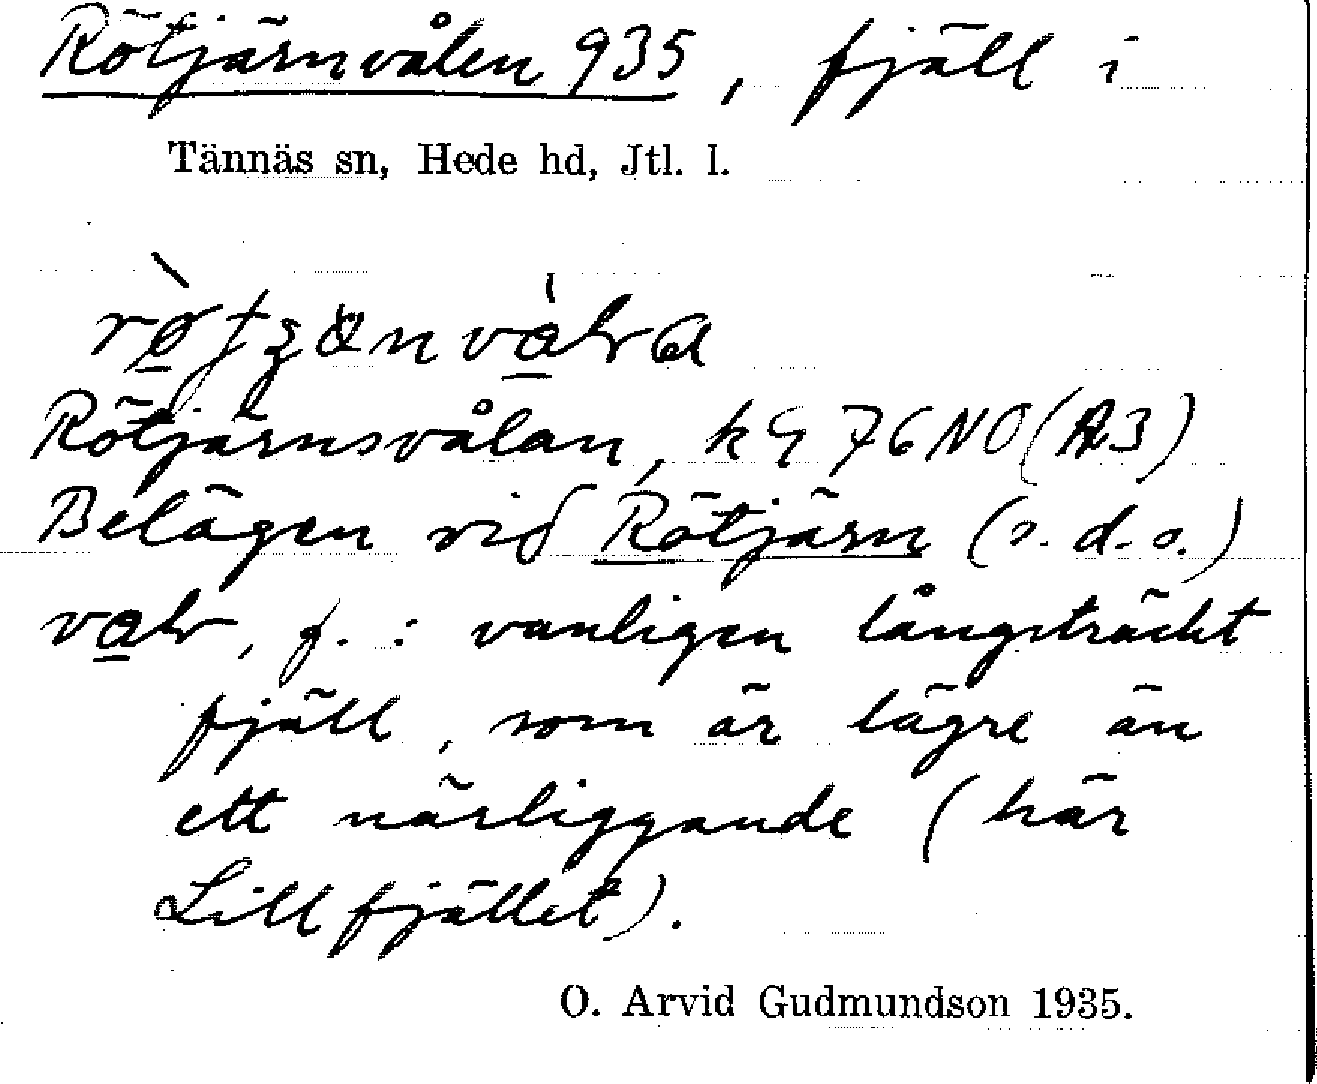 Rötjärnvålen 935, fjäll i
Tännäs sn, Hede hd, Jtl. l.
Rötjärnsvålan, k G 76 NO (A3)
Belägen vid Rötjärn (s. d. o.)
, f. : vanligen långsträckt
fjäll, som är lägre än
ett närliggande (här
Lillfjället).
O. Arvid Gudmundson 1935.